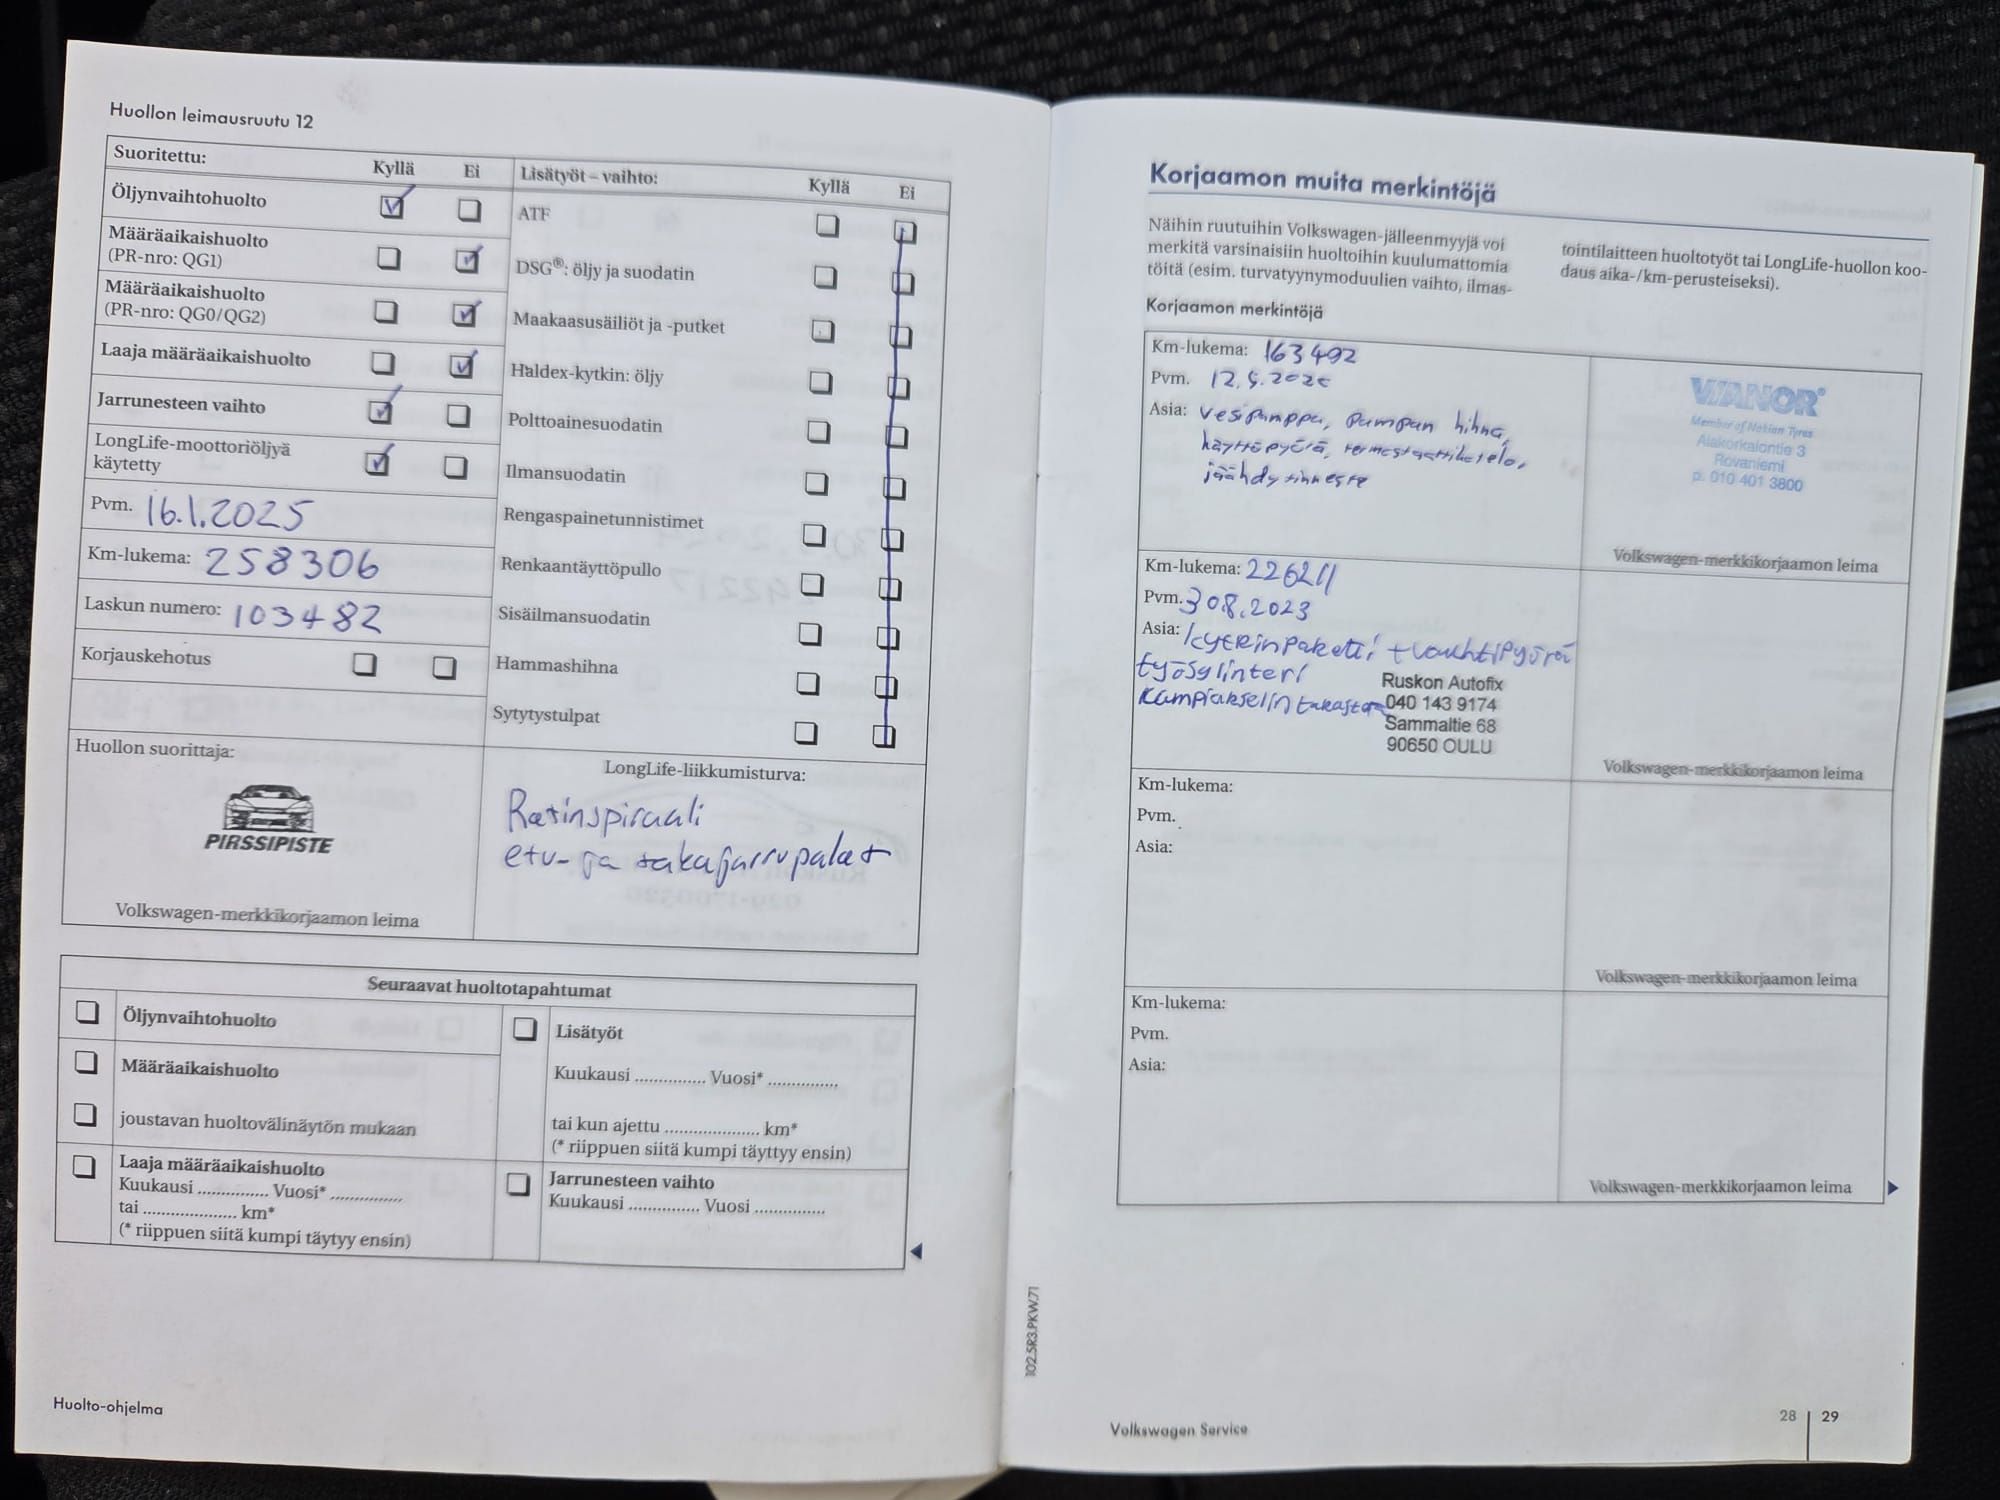 Huollon leimausruutu 12
Suoritettu: Kyllä Ei
Öljynvaihtohuolto
Määräaikaishuolto
(PR-nro: QG1)
Määräaikaishuolto
(PR-nro: QG0/QG2)
Laaja määräaikaishuolto
Jarrunesteen vaihto
LongLife-moottoriöljyä
käytetty
Pvm. 16.1.2025
Km-lukema: 258306
Laskun numero: 103482
Korjauskehotus
Lisätyöt – vaihto: Kyllä Ei
ATF
DSG®: öljy ja suodatin
Maakaasusäiliöt ja -putket
Haldex-kytkin: öljy
Polttoainesuodatin
Ilmansuodatin
Rengaspainetunnistimet
Renkaantäyttöpullo
Sisäilmansuodatin
Hammashihna
Sytytystulpat
Huollon suorittaja:
PIRSSIPISTE
Volkswagen-merkkikorjaamon leima
LongLife-liikkumisturva:
Ratinspiraali
etu- ja takajarrupalat
Seuraavat huoltotapahtumat
Öljynvaihtohuolto
Määräaikaishuolto
joustavan huoltovälinäytön mukaan
Laaja määräaikaishuolto
Kuukausi ............... Vuosi* ...............
tai .................... km*
(* riippuen siitä kumpi täytyy ensin)
Lisätyöt
Kuukausi ............... Vuosi* ...............
tai kun ajettu .................... km*
(* riippuen siitä kumpi täyttyy ensin)
Jarrunesteen vaihto
Kuukausi ............... Vuosi ...............
Huolto-ohjelma
Korjaamon muita merkintöjä
Näihin ruutuihin Volkswagen-jälleenmyyjä voi
merkitä varsinaisiin huoltoihin kuulumattomia
töitä (esim. turvatyynymoduulien vaihto, ilmas-
tointilaitteen huoltotyöt tai LongLife-huollon koo-
daus aika-/km-perusteiseksi).
Korjaamon merkintöjä
Km-lukema: 163492
Pvm.
Asia: vesipumppu, pumpun hihna,
käyttöpyörä, termostaattikotelo,
jäähdytinneste
VIANOR®
Member of Nokian Tyres
Alakorkalontie 3
Rovaniemi
p. 010 401 3800
Volkswagen-merkkikorjaamon leima
Km-lukema: 226211
Pvm. 30.8.2023
Asia: kytkinpaketti + vauhtipyörä
työsylinteri
kampiakselin
Ruskon Autofix
040 143 9174
Sammaltie 68
90650 OULU
Volkswagen-merkkikorjaamon leima
Km-lukema:
Pvm.
Asia:
Volkswagen-merkkikorjaamon leima
Km-lukema:
Pvm.
Asia:
Volkswagen-merkkikorjaamon leima
102.5R3.PKW.71
Volkswagen Service
28 29